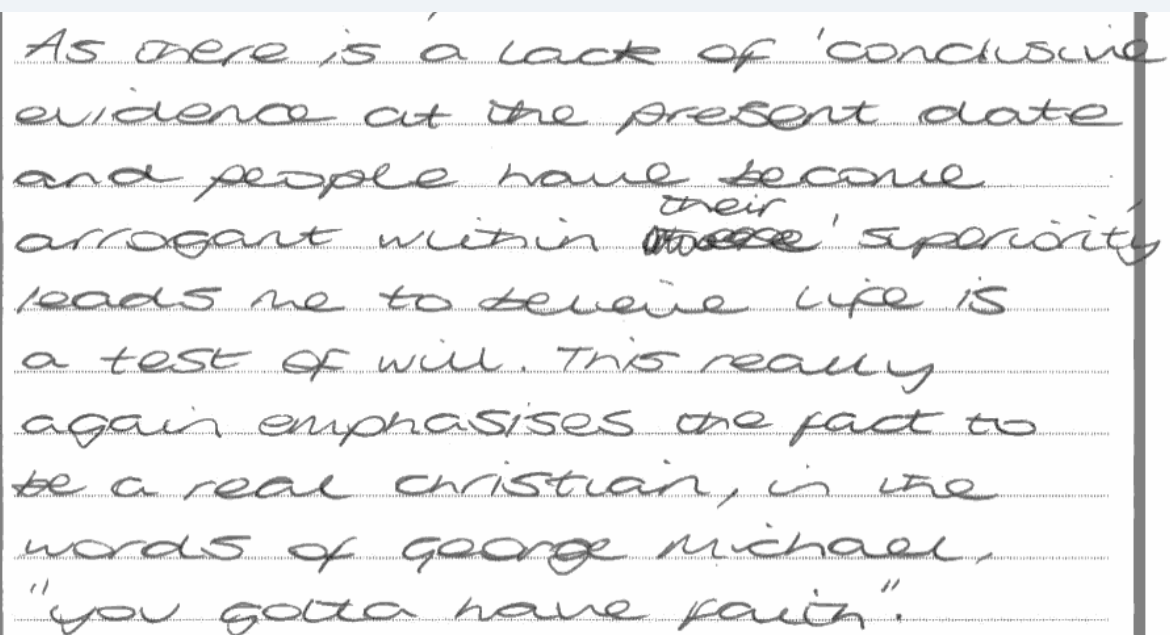 As there is a lack of 'conclusive
evidence at the present date
and people have become
arrogant within their 'superiority
leads me to beleive life is
a test of will. This really
again emphasises the fact to
be a real christian, in the
words of george Michael,
"you gotta have faith".